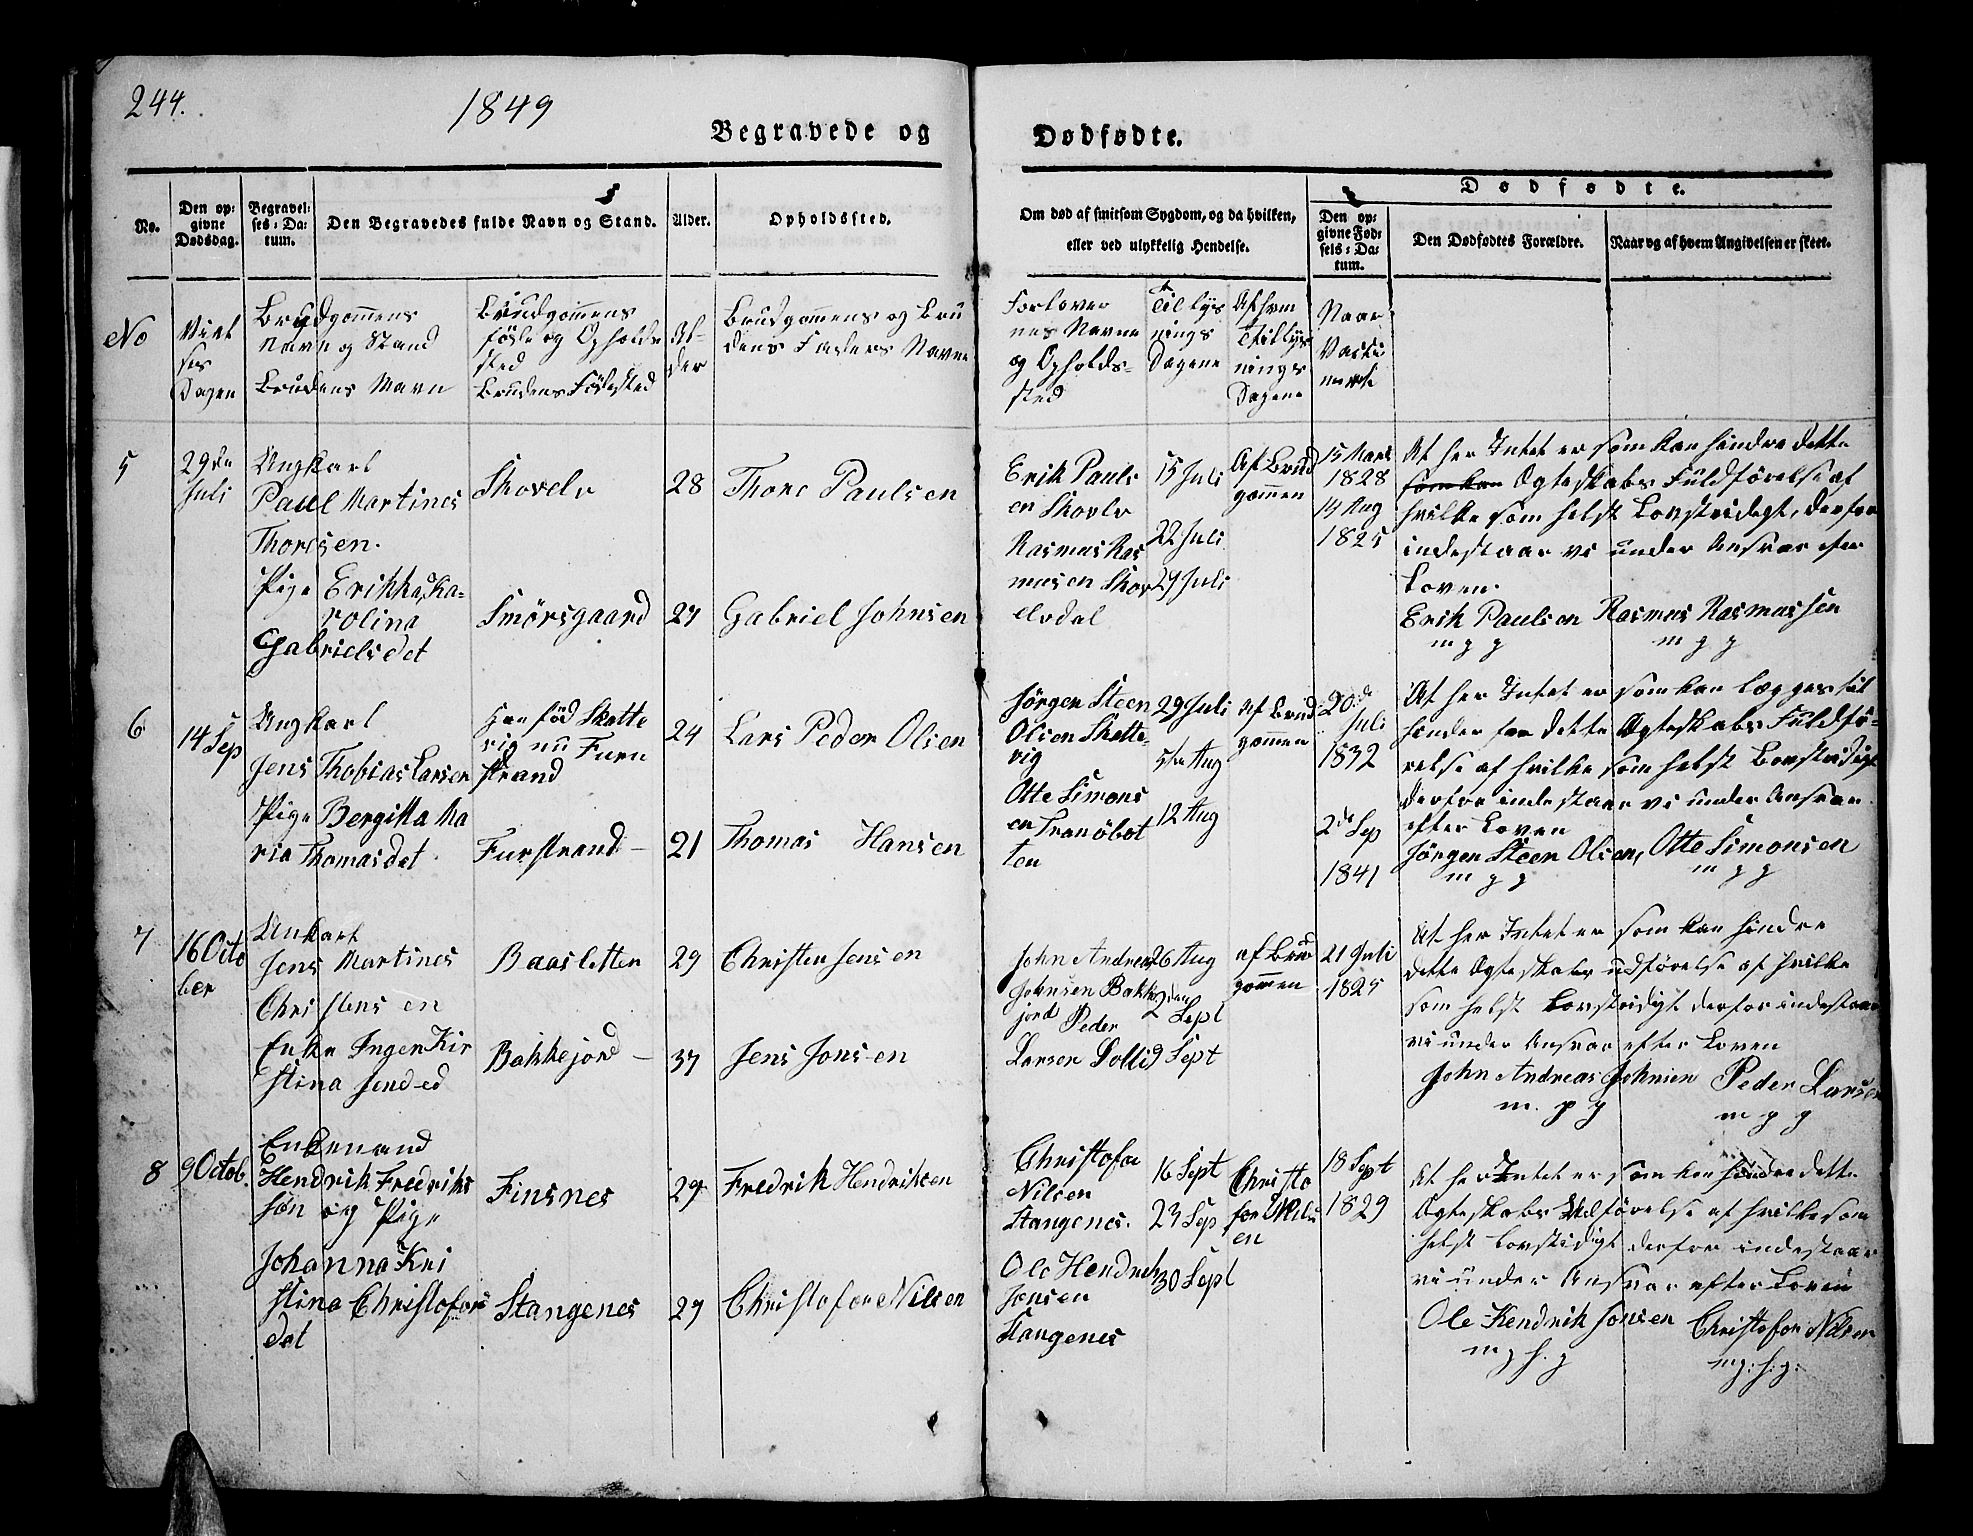 244.
1849
Begravede og Dødfødte.
No.
Den op-
givne
Dødsdag.
Begravel-
ses-Da-
tum.
Den Begravedes fulde Navn og Stand.
Alder.
Opholdssted.
Om død af smitsom Sygdom, og da hvilken,
eller ved ulykkelig Hendelse.
Dødfødte.
Den op-
givne Fød-
sels-Da-
tum.
Den Dødfødtes Forældre.
Naar og af hvem Angivelsen er skeet.
No
Viel
ses
Dagen
Brudgommens
Navn og Stand
Brudens Navn
Brudgommens
Föde og Opholds
sted
Brudens Födested
Al-
der
Brudgommens og Bru
dens Faders Navne
Forlover
nes Navne
og Opholds-
sted
Tillys
nings
Dagene
Af hvem
Tillys
nings
Dagene
Naar
Vacci
nerede
5
29de
Juli
Ungkarl
Paul Martines
Thoresen.
Pige Erikka Ka-
rolina
Gabrielsdet
Skovelv
Smörsgaard
28
27
Thore Paulsen
Gabriel Johnsen
Erik Pauls
en Skovlv
Rasmus Ras
musen Skov
elvdal
15 Juli
22 Juli
29 Juli
Af Brud
gommen
15 Mars
1828
14 Aug
1825
At her Intet er som kan hindre dette
som kan Ogteskabs Fuldförelse af
hvilke som helst Lovstridigt, derfor
indestaar vi under Ansvar efter
Loven.
Erik Paulsen Rasmus Rasmussen
m g g m g g
6
14 Sep
Ungkarl
Jens Thobias Larsen
Pige Bergitta Ma
ria Thomasdet
Han föd Skatte
vig nu Furu
strand
Furstrand -
24
21
Lars Peder Olsen
Thomas Hansen
Jörgen Steen
Olsen Skatte-
vig
Otte Simons
en Tranöbot
ten
29 Juli
5te Aug
12 Aug
Af Brud
gommen
20de
Juli
1832
2de Sep
1841
At her Intet er som kan lægges til
hinder for dette Ægteskabs Fuldfö-
relse af hvilke som helst Lovstridigt
derfor indestaar vi under Ansvar
efter Loven
Jörgen Steen Olsen, Otte Simonsen
m g g m g g
7
16 Octo
ber
Unkarl
Jens Martines
Christensen
Enke Ingen Kir
stina Jensd-ed
Baasletten
Bakkejord -
29
37
Christen Jensen
Jens Jonsen
John Andreas
Johnsen Bakke
jord Peder
Larsen Solli
26 Aug
2den
Sept
9 Sept
af Brud
gommen
21 Juli
1825
At her Intet er som kan hindre
dette Ogteskabs udförelse af hvilke
som helst Lovstridigt derfor indestaar
vi under Ansvar efter Loven
John Andreas Johnsen Peder Larsen
m. p g m p g
8
9 Octob.
Enkemand
Hendrik Fredriks
sön og Pige
Johanna Kri
stina Christofers
dat
Finsnes
Stangenes
29
29
Fredrik Hendriksen
Christofer Nilsen
Christofer
Nilsen
Stangenes.
Ole Hendrik
Jonsen
Stangenes
16 Sept
23 Sep
30 Sept
Christo
fer Nils
en
18 Sept
1829
At her Intet er som kan hindre dette
Ogteskabs Udförelse af hvilke som
helst Lovstridigt derfor indestaar
vi under Ansvar efter Loven
Ole Hendrik Jonsen Christofer Nilsen
m g h. g m: g: h: g: